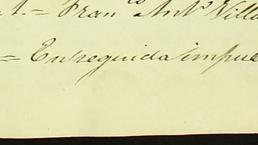 t. = Fran.co Ant.o Villa
= Enseguida impue